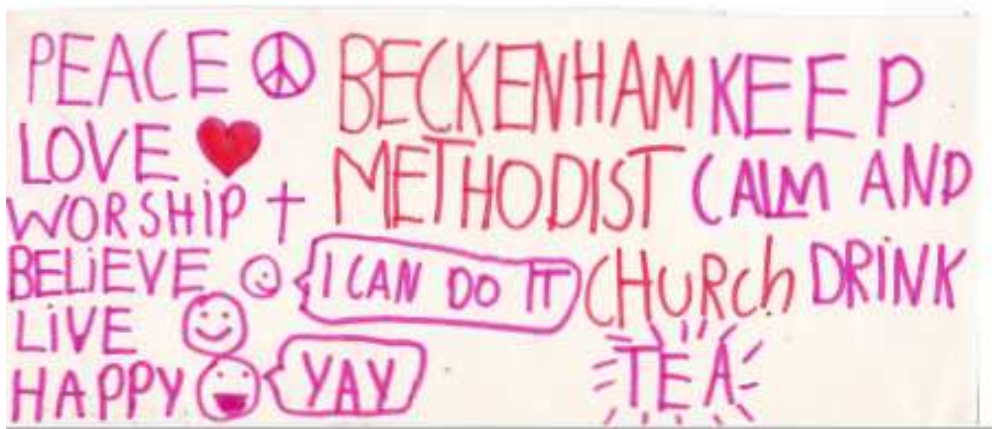 PEACE
LOVE
WORSHiP
BELiEVE
I CAN DO IT
LiVE
HAPPY
YAY
BECKENHAM
METHODIST
CHURCh
KEEP
CALM AND
DRiNK
TEA